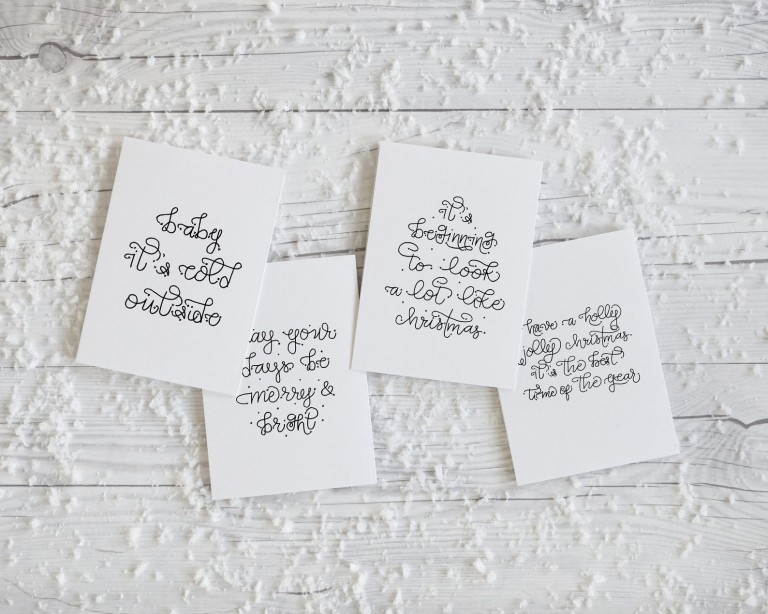 baby
it's cold
outside
ay your
days be
merry &
bright
it's
beginning
to look
a lot like
christmas.
have a holly
jolly christmas.
it's the best
time of the year